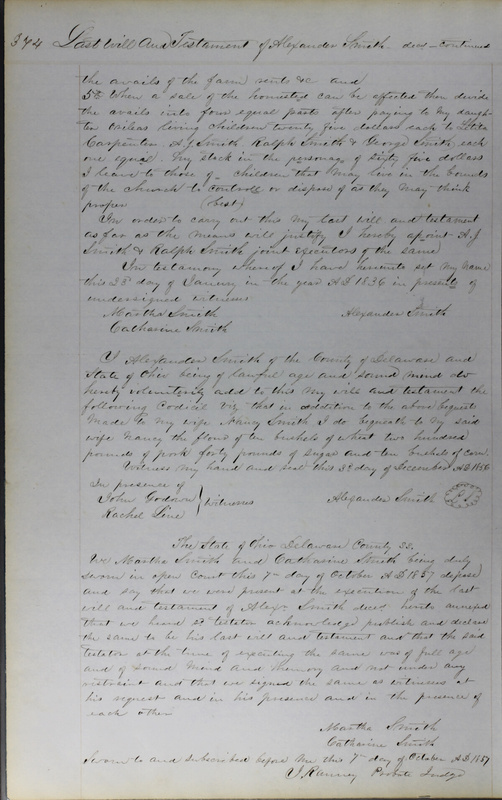 374 Last Will and Testament of Alexander Smith decd - continued
the avails of the farm rents &c and
5th When a sale of the homested can be affected then divide
the avails into four equal parts after paying to my daugh-
ter living children twenty five dollars each to
Carpenter A. J. Smith Ralph Smith & George Smith each
one equal. My stock in the personage of sixty five dollars
I leave to those of children that may live in the bounds
of the church to controll or dispose of as they may think
proper (best)
In order to carry out this my last will and testament
as far as the means will justify I hereby apoint A. J.
Smith & Ralph Smith joint executors of the same
In testamony whereof I have hereunto set my name
this 23d day of January in the year AD 1856 in presents of
undersigned witness
Martha Smith Alexander Smith
Catharine Smith
I Alexander Smith of the County of Delaware and
State of Ohio being of lawful age and sound mind do
hereby voluntarily add to this my will and testament the
following Codicil Viz that in addition to the above bequest
made to my wife Nancy Smith I do bequeath to my said
wife Nancy the flour of ten bushels of wheat two hundred
pounds of pork forty pounds of sugar and ten bushels of corn.
Witness my hand and seal this 3d day of December AD 1856
In presence of
John Godown } Witnesses Alexander Smith
Rachel Line
The State of Ohio Delaware County SS.
We Martha Smith and Catharine Smith being duly
sworn in open Court this 7th day of October AD 1857 depose
and say that we were present at the execution of the last
will and testament of Alexr Smith decd hereto annexed
that we heard sd testator acknowledge publish and declare
the same to be his last will and testament and that the said
testator at the time of executing the same was of full age
and of sound mind and memory and not under any
restraint and that we signed the same as witnesses at
his request and in his presence and in the presence of
each other
Martha Smith
Catharine Smith
Sworn to and subscribed before me this 7th day of October AD 1857
J Ranney Probate Judge